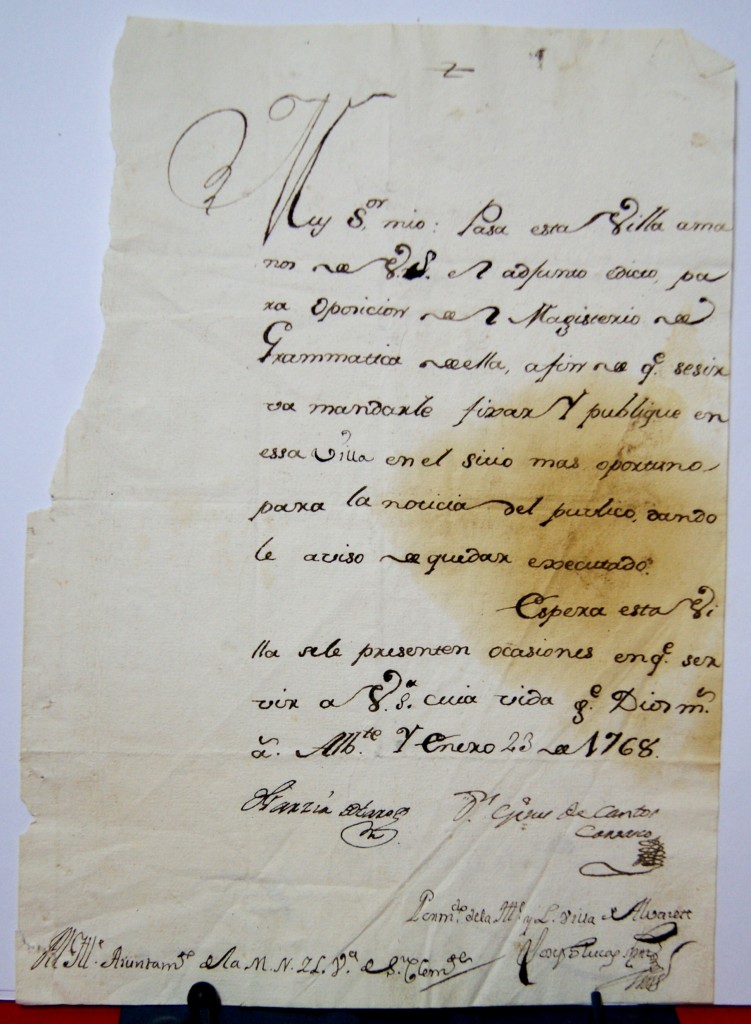 Muy S.or mio: Pasa esta Villa ama
nos de V.S. el adjunto edicto, pa
ra Oposicion del Magisterio de
Grammatica de ella, afin de q.e se sir
va mandarle fixar Y publique en
essa Villa en el sitio mas oportuno
para la noticia del publico, dando
le aviso de quedar executado.
Espera esta Vi
lla se le presenten ocasiones en q.e ser
vir a V.S.a cuia vida g.e Dios m.s
a.s Alb.te Y Enero 23 de 1768.
Garzia de Haro
D.n Gines de Cantos
Carrasco
Por m.do de la Ill.e y L. Villa de Alvazete
Joseph
Al Ill.e Aiuntam.to de la M. N. y L. V.a de S.n Clem.te